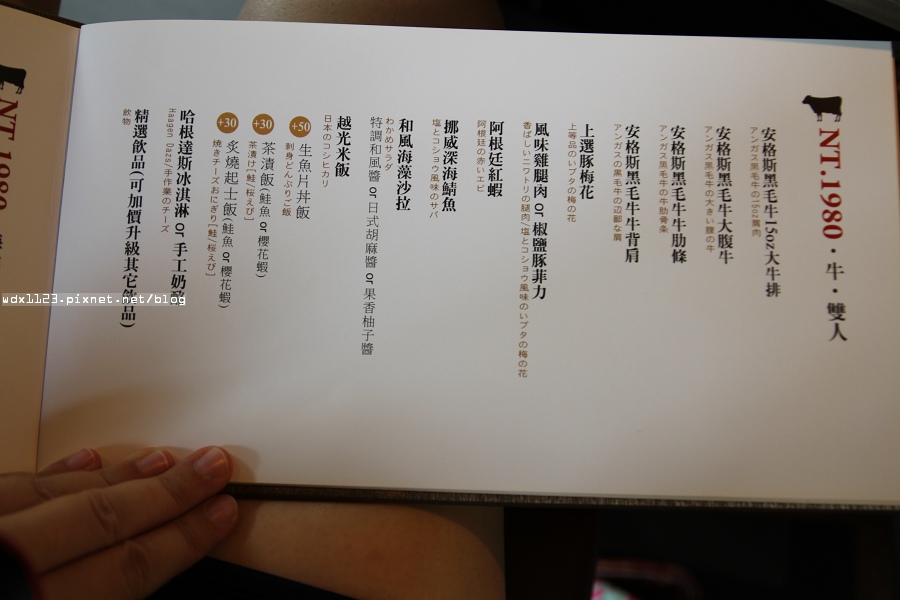 NT.1980・牛・雙人
安格斯黑毛牛15oz大牛排
アンガス黒毛牛の15oz肩肉
安格斯黑毛牛大腹牛
アンガス黒毛牛の大きい腹の牛
安格斯黑毛牛牛肋條
アンガス黒毛牛の牛肋骨条
安格斯黑毛牛牛背肩
アンガスの黒毛牛の辺鄙な肩
上選豚梅花
上等品のいブタの梅の花
風味雞腿肉 or 椒鹽豚菲力
香ばしいニワトリの腿肉/塩とコショウ風味のいブタの梅の花
阿根廷紅蝦
阿根廷の赤いエビ
挪威深海鯖魚
塩とコショウ風味のサバ
和風海藻沙拉
わかめサラダ
特調和風醬 or 日式胡麻醬 or 果香柚子醬
越光米飯
日本のコシヒカリ
+50 生魚片丼飯
刺身どんぶりご飯
+30 茶漬飯(鮭魚 or 櫻花蝦)
茶漬け[鮭/桜えび]
+30 炙燒起士飯(鮭魚 or 櫻花蝦)
焼きチーズおにぎり[鮭/桜えび]
哈根達斯冰淇淋 or 手工奶
Haagen Dazs/手作業のチーズ
精選飲品(可加價升級其它飲品)
飲物
NT.1980
wdx1123.pixnet.net/blog